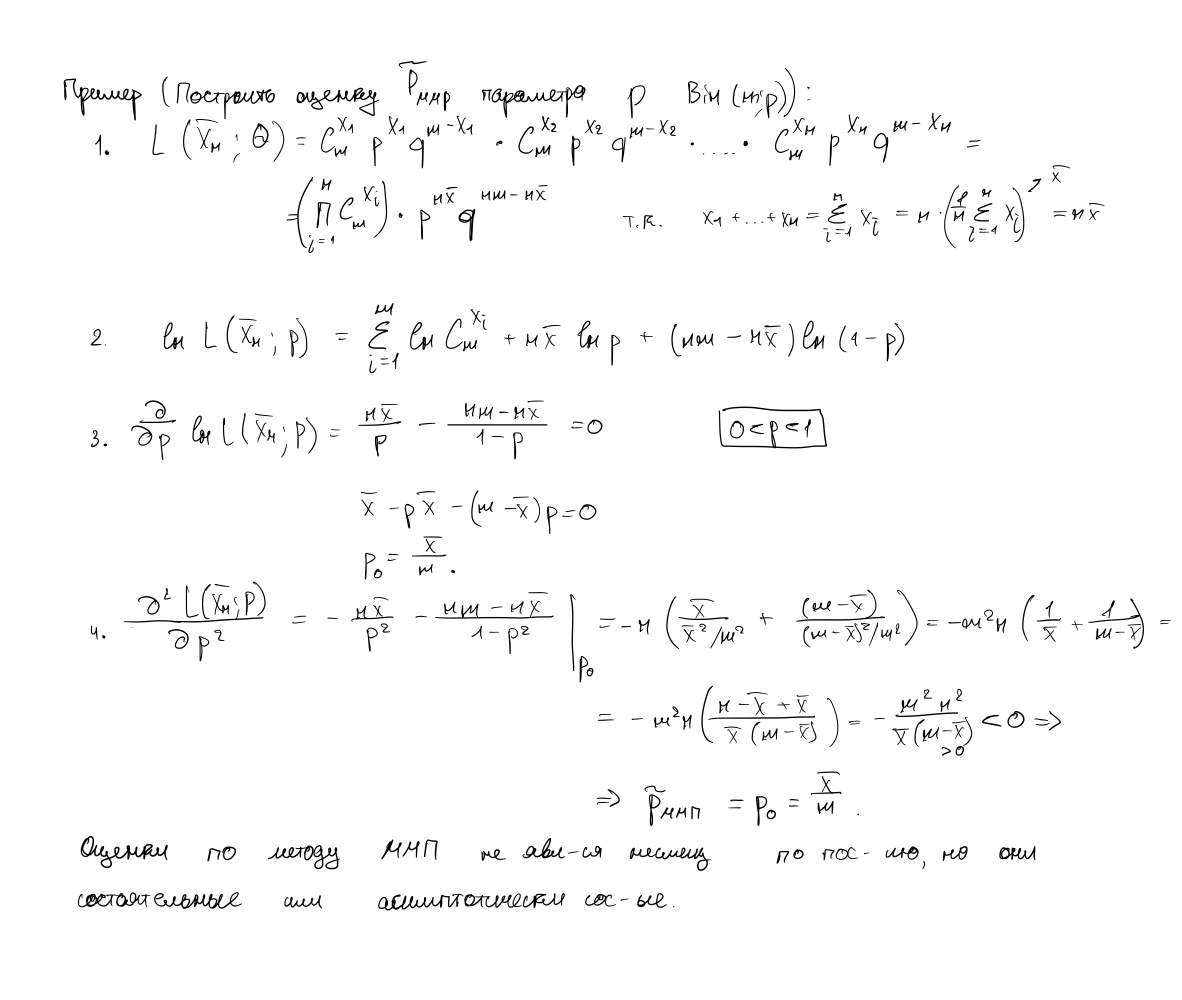 Пример (Построить оценку p̃ₘₘₚ параметра p Bin (m;p)):
1. L (X̄ₙ; Θ) = Cₘ^{X₁} p^{X₁} q^{m-X₁} · Cₘ^{X₂} p^{X₂} q^{m-X₂} · .... · Cₘ^{Xₙ} p^{Xₙ} q^{m-Xₙ} =
= (∏_{i=1}^{n} Cₘ^{X_i}) · p^{nX̄} q^{nm-nX̄} т.к. X₁+...+Xₙ = Σ_{i=1}^{n} X_i = n·(1/n Σ_{i=1}^{n} X_i)↗X̄ = nX̄
2. ln L(X̄ₙ; p) = Σ_{i=1}^{m} ln Cₘ^{X_i} + nX̄ ln p + (nm - nX̄) ln (1-p)
3. ∂/∂p ln L(X̄ₙ; p) = nX̄/p - (nm-nX̄)/(1-p) = 0 0<p<1
X̄ - pX̄ - (m-X̄)p = 0
p₀ = X̄/m.
4. ∂²L(X̄ₙ;p)/∂p² = - nX̄/p² - (nm-nX̄)/(1-p²) |_{p₀} = -n (X̄/(X̄²/m²) + (m-X̄)/((m-X̄)²/m²)) = -m²n (1/X̄ + 1/(m-X̄)) =
= -m²n ((n-X̄+X̄)/(X̄(m-X̄))) = - m²n²/(X̄(m-X̄)) < 0 =>
>0
=> p̃ₘₘₙ = p₀ = X̄/m.
Оценки по методу ММП не явл-ся несмещ по пос-ию, но они
состоятельные или асимптотически сос-ые.